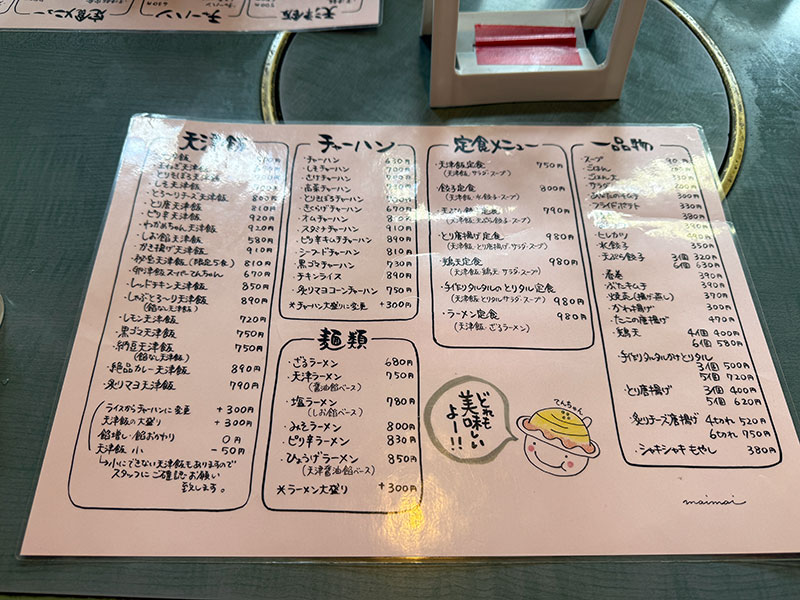 天津飯
玉ねぎ天津飯
とりそぼろ天津飯
しそ天津飯
とろ〜りチーズ天津飯 800円
とり唐天津飯 920円
ピリ辛天津飯 920円
わかめちゃん天津飯 910円
しお餡天津飯 580円
かき揚げ天津飯 910円
秘宝天津飯(限定5食) 810円
卵津飯スーパーてんちゃん 670円
レッドチキン天津飯 850円
しゃぶとろ〜り天津飯 890円
(餡なし天津飯)
レモン天津飯 720円
黒ゴマ天津飯 750円
納豆天津飯 750円
(餡なし天津飯)
絶品カレー天津飯 890円
炙りマヨ天津飯 790円
ライスからチャーハンに変更 +300円
天津飯の大盛り +300円
餡増し・餡おかわり 0円
天津飯 小 -50円
小にできない天津飯もありますので
スタッフにご確認お願い
致します。
チャーハン
チャーハン 630円
しそチャーハン 700円
さけチャーハン
高菜チャーハン
とりそぼろチャーハン
きくらげチャーハン 670円
オムチャーハン 810円
スタミナチャーハン 910円
ピリ辛キムチチャーハン 890円
シーフードチャーハン 810円
黒ゴマチャーハン 730円
チキンライス 890円
炙りマヨコーンチャーハン 750円
※チャーハン大盛りに変更 +300円
麺類
ざるラーメン 680円
天津ラーメン 750円
(醤油餡ベース)
塩ラーメン 780円
(しお餡ベース)
みそラーメン 800円
ピリ辛ラーメン 830円
ひょうげラーメン 850円
(天津醤油餡ベース)
※ラーメン大盛り +300円
定食メニュー
天津飯定食 750円
(天津飯・サラダ・スープ)
餃子定食 800円
(天津飯・水餃子・スープ)
天ぷら餃子定食 790円
(天津飯・天ぷら餃子・スープ)
とり唐揚げ定食 980円
(天津飯・とり唐揚げ・サラダ・スープ)
鶏天定食 980円
(天津飯・鶏天・サラダ・スープ)
手作りタルタルのとりタル定食
(天津飯・とりタル・サラダ・スープ) 980円
ラーメン定食 980円
(天津飯・ざるラーメン)
どれも
美味しい
よー!!
てんちゃん
一品物
スープ 90円
ごはん
ごはん大
サラダ
フライドポテト
380円
ヒレカツ 390円
水餃子 350円
天ぷら餃子 3個 320円
6個 630円
春巻 390円
ぶたキムチ 390円
焼売(揚げ・蒸し) 370円
かわ揚げ 300円
たこの唐揚げ 470円
鶏天 4個 400円
6個 580円
手作りタルタルがけとりタル
3個 500円
5個 720円
とり唐揚げ 3個 400円
5個 620円
炙りチーズ唐揚げ 4切れ 520円
6切れ 750円
シャキシャキもやし 380円
maimai